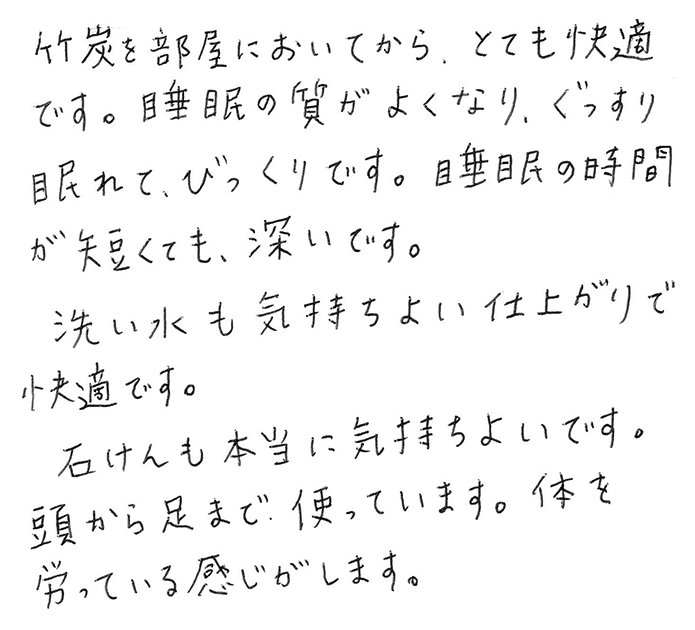 竹炭を部屋においてから、とても快適
です。睡眠の質がよくなり、ぐっすり
眠れて、びっくりです。睡眠の時間
が短くても、深いです。
洗い水も気持ちよい仕上がりで
快適です。
石けんも本当に気持ちよいです。
頭から足まで使っています。体を
労っている感じがします。